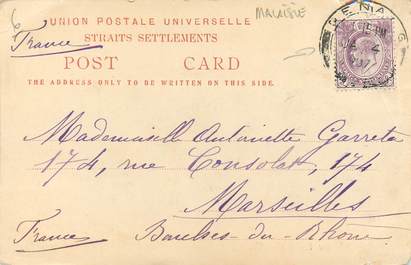 6
MALAISIE
UNION POSTALE UNIVERSELLE
PENANG
France
STRAITS SETTLEMENTS
POST CARD
THE ADDRESS ONLY TO BE WRITTEN ON THIS SIDE.
Mademoiselle Antoinette Garreta
174, rue Consolat, 174
Marseilles
France Bouches-du-Rhône